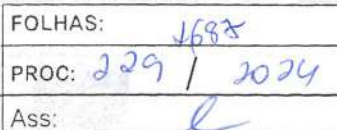 FOLHAS: 1687
PROC: 229 / 2024
Ass: